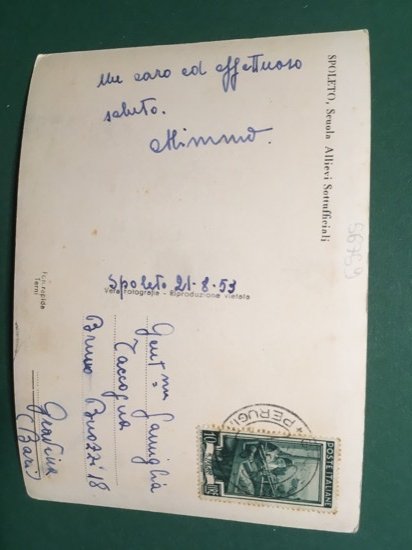 SPOLETO, Scuola Allievi Sottufficiali
Un caro ed affettuoso
saluto.
Mimmo.
56759
Spoleto 21-8-53
Vera Fotografia - Riproduzione vietata
Fotorapida
Terni
Gent.ma Famiglia
Taccogna
Bruno Buozzi 18
Gravina
(Bari)
PERUGI
POSTE ITALIANE
10
LIRE